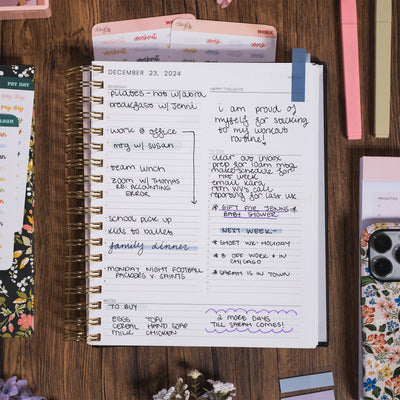 workout
WORK
PAY DAY
PAY DAY
pay day
pay day
DECEMBER 23, 2024
SCHEDULE
pilates - hot w/abra
breakfast w/ Jenni
work @ office
mtg w/ susan
team lunch
zoom w/ Thomas
RE: ACCOUNTING
ERROR
school pick up
kids to ballet
family dinner
MONDAY NIGHT FOOTBALL
PACKERS V. SAINTS
HAPPY THOUGHTS
i am proud of
myself for sticking
to my workout
routine!
TO DO
clear out inbox
prep for 10am mtg
make schedule for
next week
email kara
reporting for last wk
* GIFT FOR JENNI'S
BABY SHOWER
NEXT WEEK-
* SHORT WK- HOLIDAY
OFF WORK + IN
CHICAGO
* SARAH IS IN TOWN
NOTES
TO BUY
EGGS TOFU
CEREAL HAND SOAP
MILK CHICKEN
2 MORE DAYS
TILL SARAH COMES!
PRIORITIES